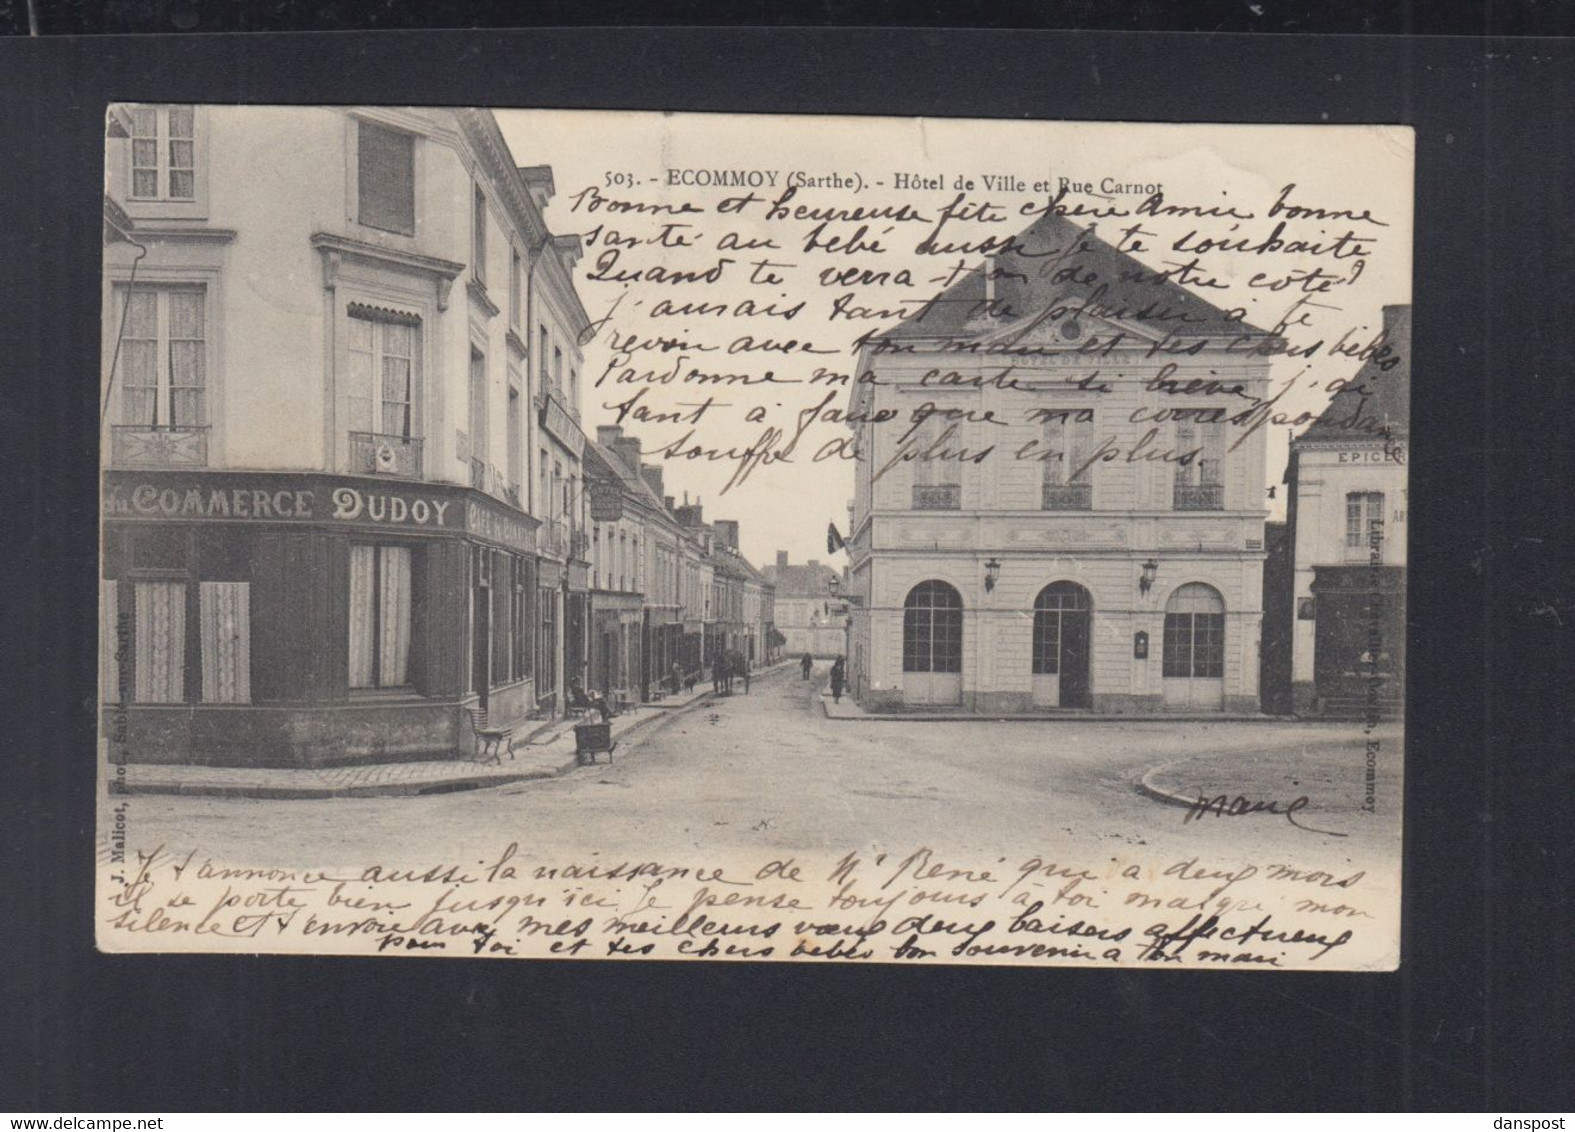 503. - ECOMMOY (Sarthe). - Hôtel de Ville et Rue Carnot
Bonne et heureuse fête chère Amie bonne
santé au bébé aussi Je te souhaite
Quand te verra-t-on de notre côté?
j'aurais tant de plaisir à te
revoir avec ton mari et tes chers bébés
Pardonne ma carte si brève, j'ai
tant à faire que ma correspondance
souffre de plus en plus.
EPICE
du COMMERCE DUDOY
HÔTEL DE VILLE
Marie
J. Malicot, phot., Sablé-sur-Sarthe
Librairie Ecommoy
Je t'annonce aussi la naissance de Mr René qui a deux mois
il se porte bien jusqu'ici je pense toujours à toi malgré mon
silence et t'envoie avec mes meilleurs vœux deux baisers affectueux
pour toi et tes chers bébés bon souvenir à ton mari
danspost